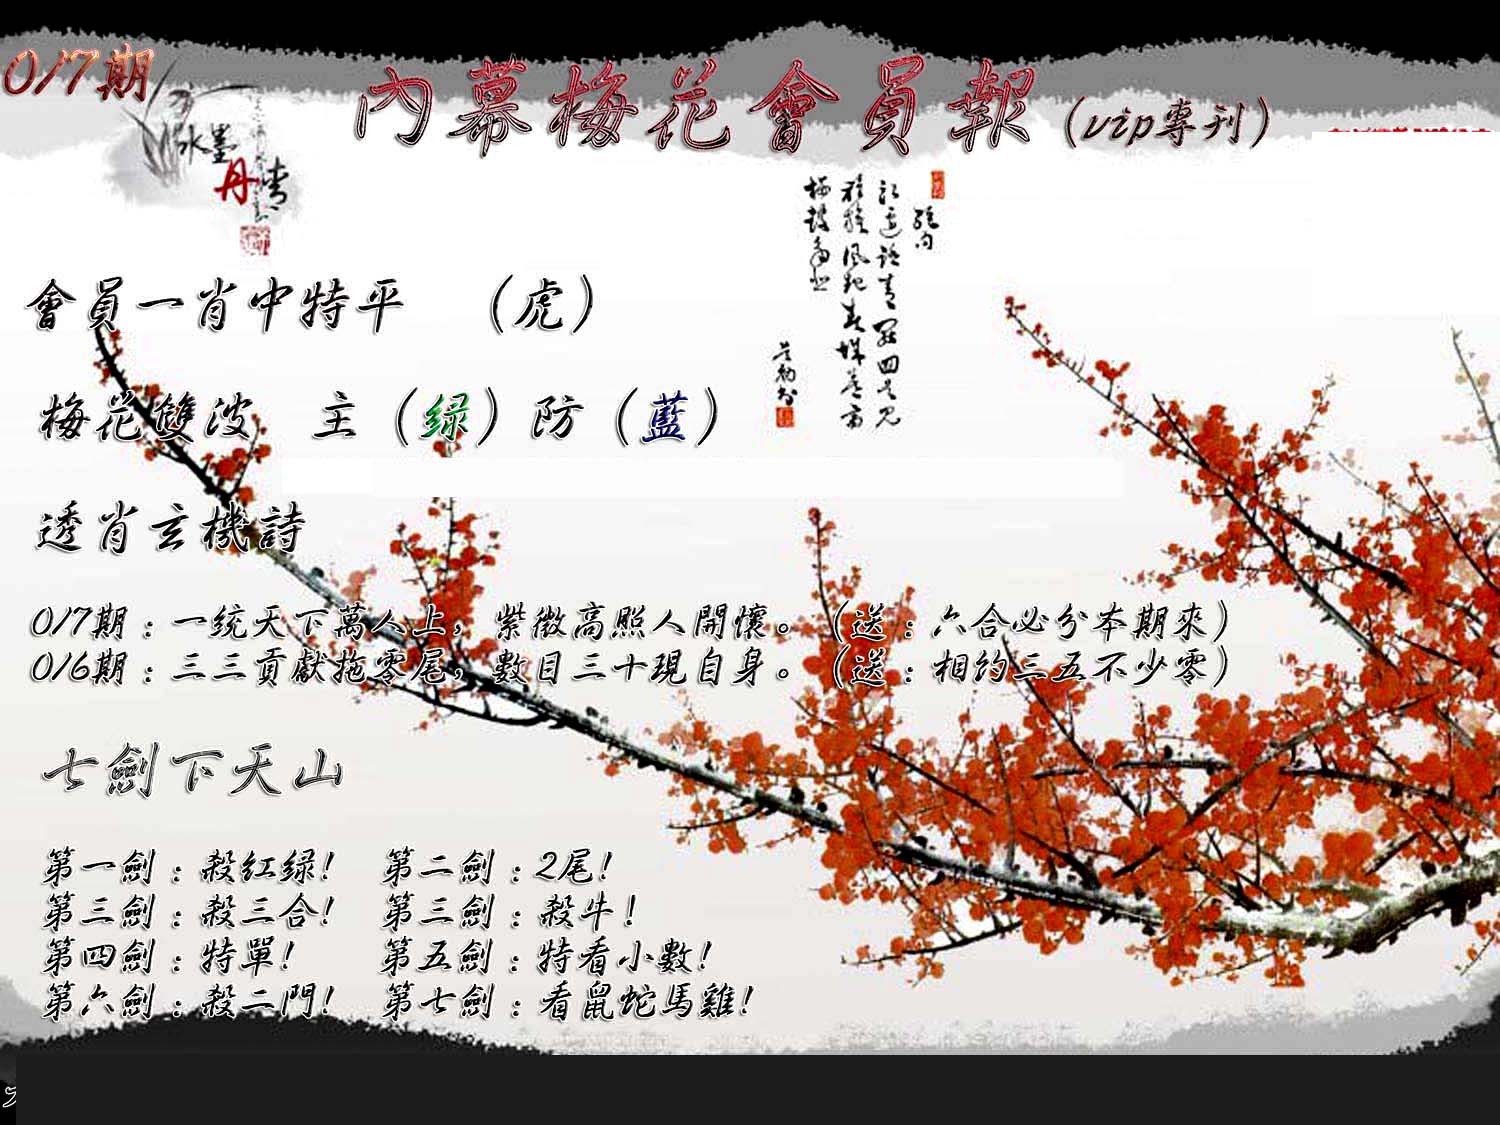 017期
內幕梅花會員報（vip專刊）
水墨
丹青
會員一肖中特平 （虎）
梅花雙波 主（綠）防（藍）
透肖玄機詩
017期：一統天下萬人上，紫微高照人開懷。（送：六合必分本期來）
016期：三三貢獻拖零尾，數目三十現自身。（送：相約三五不少零）
七劍下天山
第一劍：殺紅綠! 第二劍：2尾!
第三劍：殺三合! 第三劍：殺牛!
第四劍：特單! 第五劍：特看小數!
第六劍：殺二門! 第七劍：看鼠蛇馬雞!